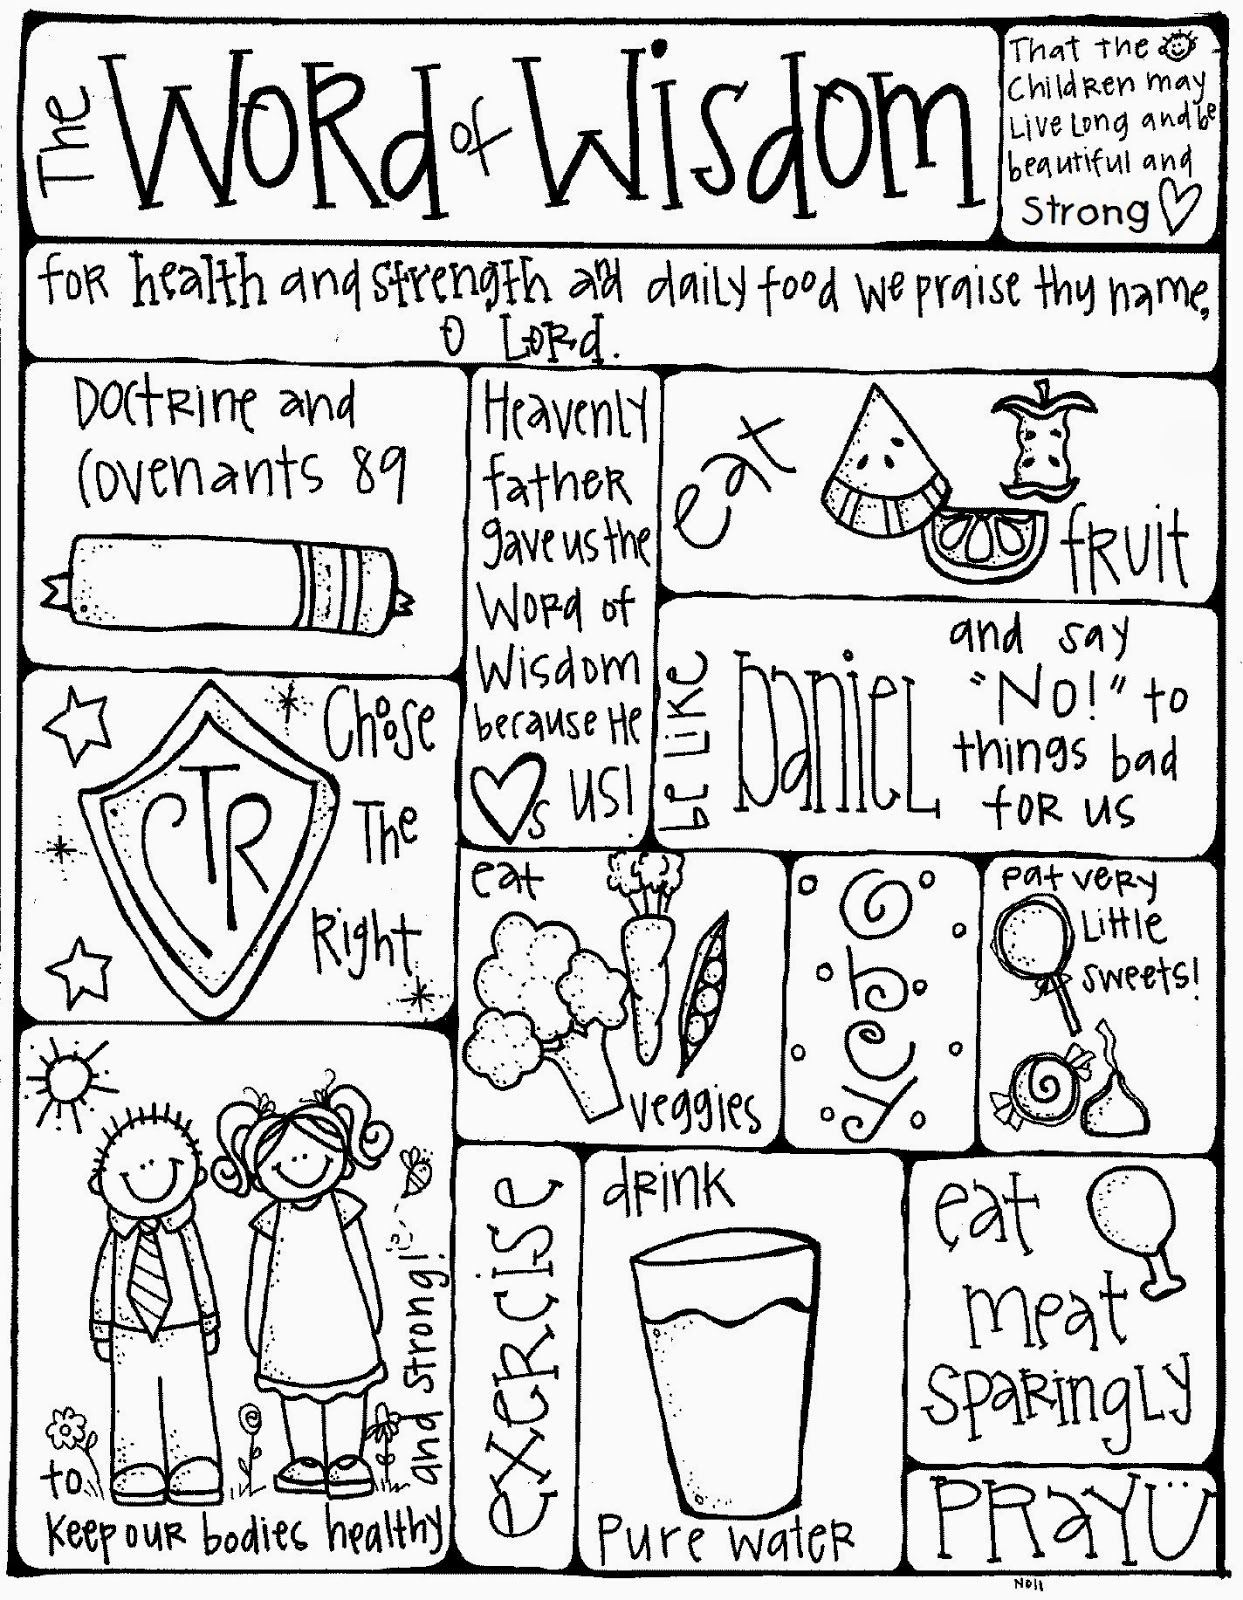 The Word of Wisdom
That the
Children may
Live Long and be
beautiful and
Strong
for health and strength and daily food we praise thy name,
O Lord.
Doctrine and
Covenants 89
Heavenly
father
gave us the
Word of
Wisdom
because He
s us!
eat
fruit
be like
Daniel
and say
"No!" to
things bad
for us
CTR
Choose
The
Right
eat
veggies
yerg
eat very
Little
sweets!
to
keep our bodies healthy
and strong!
exercise
drink
Pure water
eat
meat
sparingly
PRAY